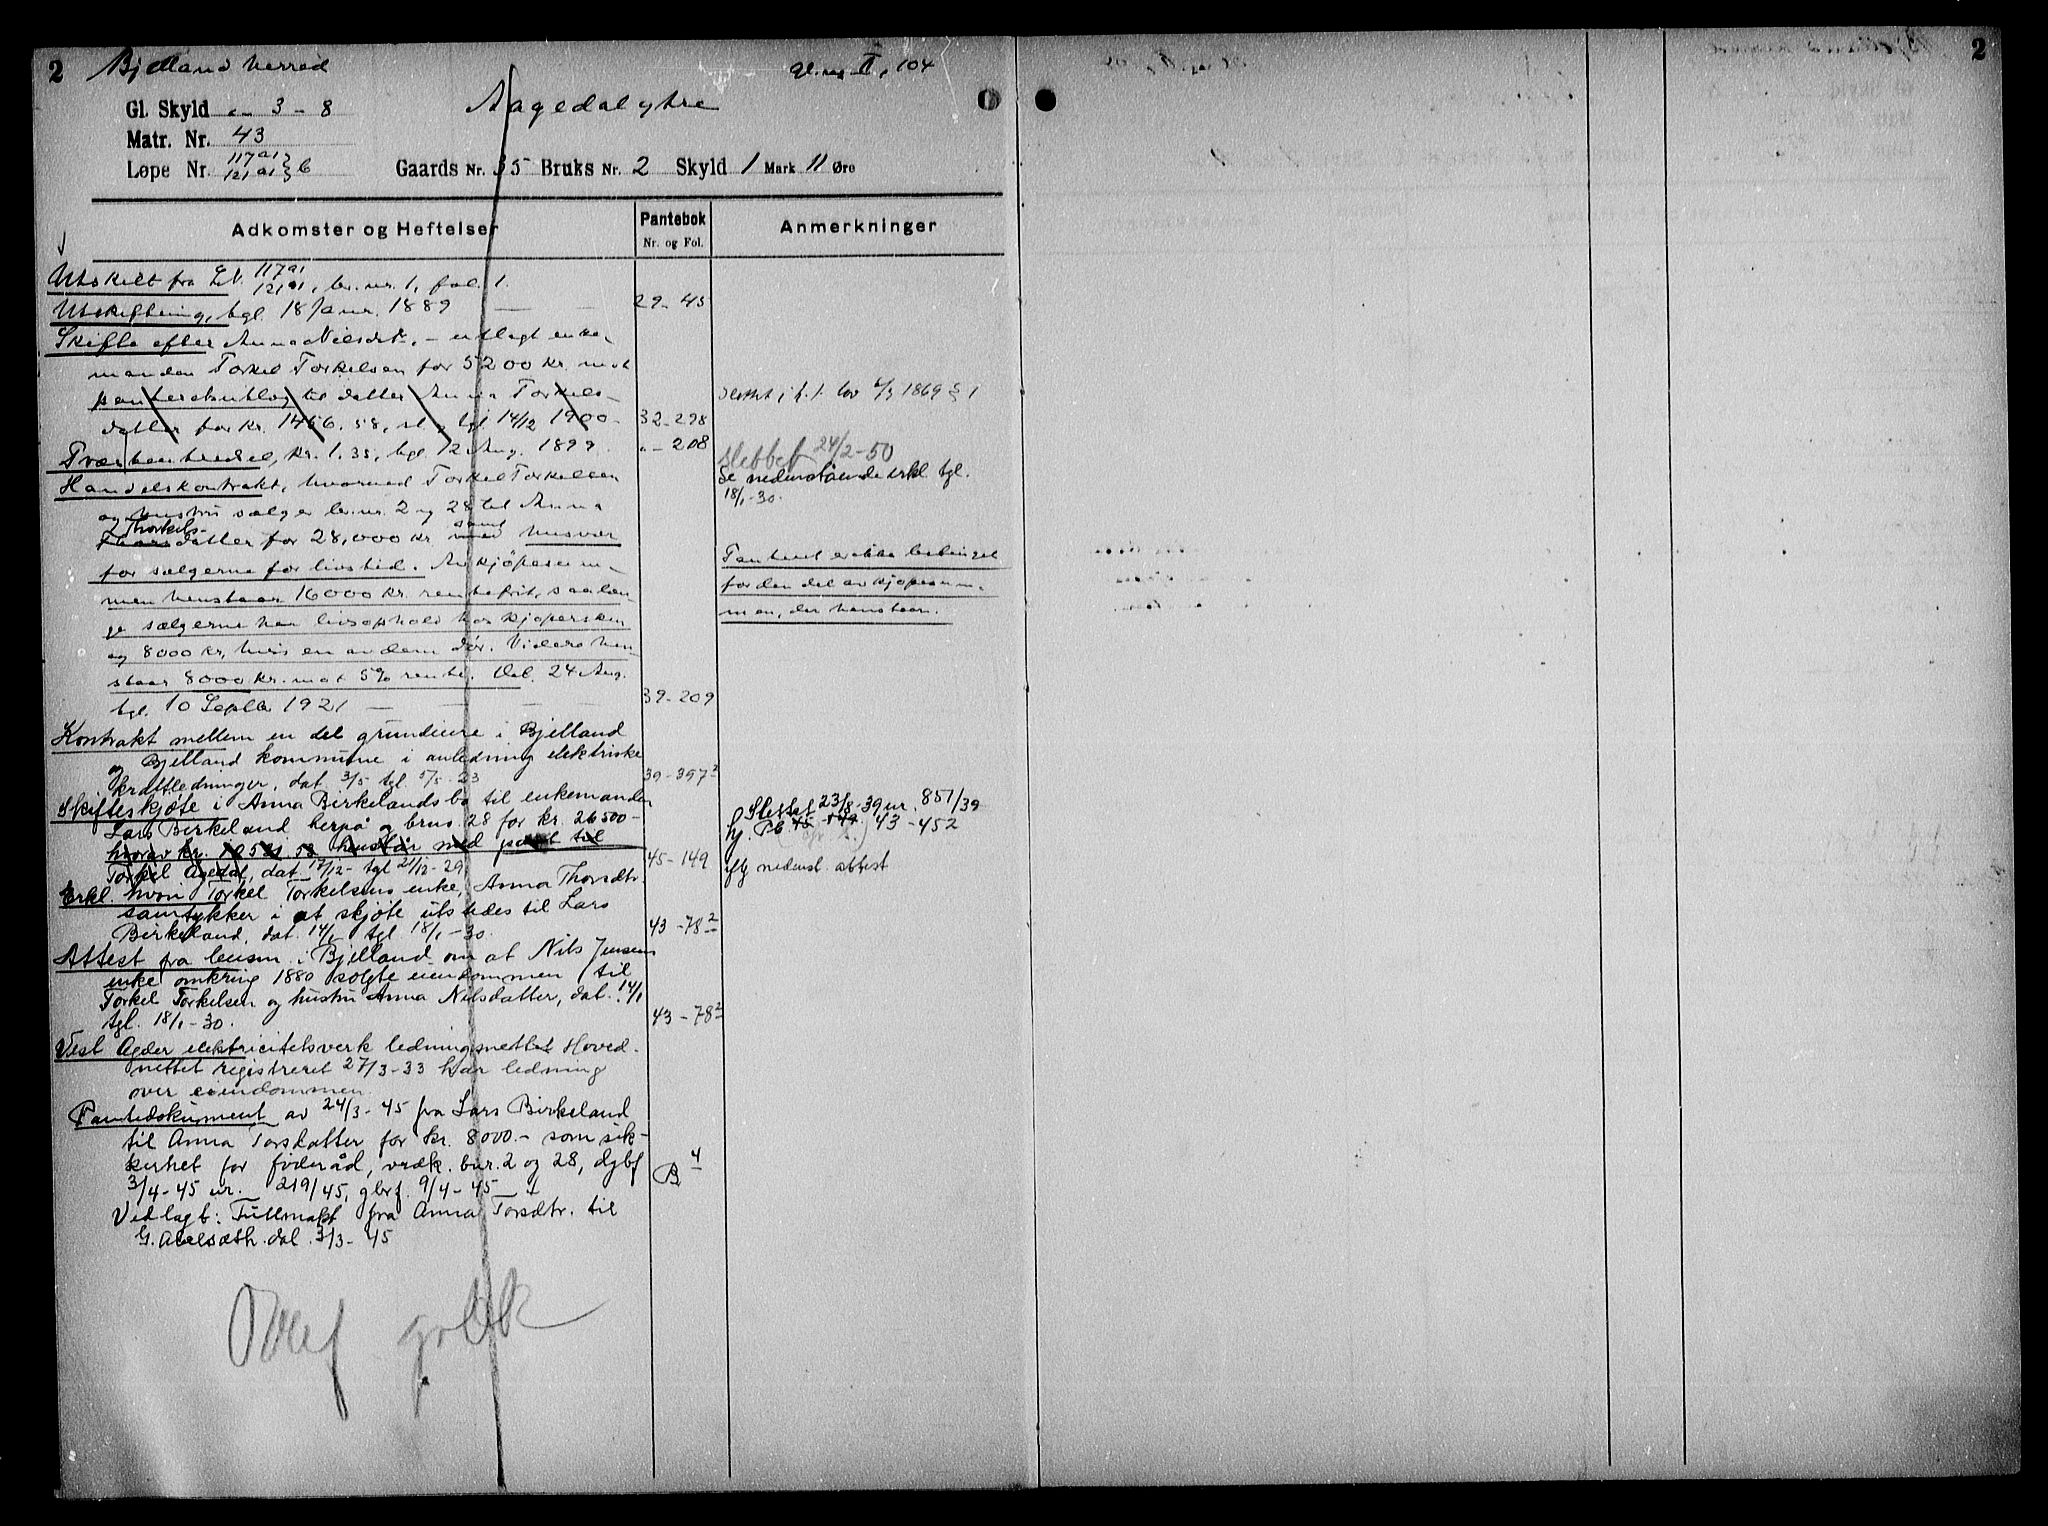 2 Bjelland herred Gl. reg. II, 104 2
Gl. Skyld " 3 - 8 Aagedal ytre
Matr. Nr. 43
Løpe Nr. 117a1 121a1 b Gaards Nr. 35 Bruks Nr. 2 Skyld 1 Mark 11 Øre
Adkomster og Heftelser Pantebok Nr. og Fol. Anmerkninger
Utskilt fra Lb. 117a1 121a1, br.nr. 1, fol. 1.
Utskiftning, tgl. 18 Janur. 1889 29-45
Skifte efter Anna Nilsdtr. - utlagt enke-
manden Torkel Torkelsen for 5200 kr. mot
panteretsutlæg til datter Anna Torkels-
datter for kr. 1456.58, tgl. 14/12 1900 - 32-298
Slettet i h. t. lov 6/3 1869 § 1
Tvær kr. 1.35, tgl. 12 Aug. 1899. "-208
slettet 24/2-50
Handelskontrakt, hvorved Torkel Torkelsen
og hustru sælger br.nr. 2 og 28 til Anna
Thorkels-
datter for 28,000 kr samt husvær
for sælgerne for livstid. Av kjøpesum-
men henstaar 16000 kr. rentefrit, saalæn-
ge sælgerne har livsophold hos kjøpersken
og 8000 kr, hvis en av dem dør. Videre hen-
staar 8000 kr. mot 5% rente. Dat. 24 Aug.
tgl. 10 Septbr 1921 - - - - 39-209
Se nedenstående erkl tgl.
18/1-30.
Panteret er ikke betinget
for den del av kjøpesum-
men, der henstaar.
Kontrakt mellem en del grundeiere i Bjelland
og Bjelland kommune i anledning elektriske
kraftledninger, dat. 3/5 tgl. 5/5-23 39-397²
Skifteskjøte i Anna Birkelands bo til enkemanden
Lars Birkeland herpå og brnr. 28 for kr. 26500-
hvorav kr. 10531.53 henstår med pant til
Torkel Agedal, dat. 17/12- tgl 21/12-29. 45-149
Slettet 23/8-39 nr. 851/39
43-452
iflg nedenst. attest
Erkl. hvori Torkel Torkelsens enke, Anna Thorsdtr.
samtykker i at skjøte utstedes til Lars
Birkeland, dat. 14/1 tgl. 18/1-30. 43-78²
Attest fra lensm. i Bjelland om at Nils Jensens
enke omkring 1880 solgte eiendommen til
Torkel Torkelsen og hustru Anna Nilsdatter, dat. 14/1
tgl. 18/1-30. 43-78²
Vest Agder elektricitetsverk ledningsnettet Hoved-
nettet registreret 27/3-33 har ledning
over eiendommen.
Pantedokument av 24/3-45 fra Lars Birkeland
til Anna Torsdatter for kr. 8000.- som sik-
kerhet for føderåd, vedk. bnr. 2 og 28, dgbf
3/4-45 nr. 219/45, gbrf. 9/4-45 B 4
Vedlagt: Fullmakt fra Anna Torsdtr. til
dat. 3/3-45
Overf